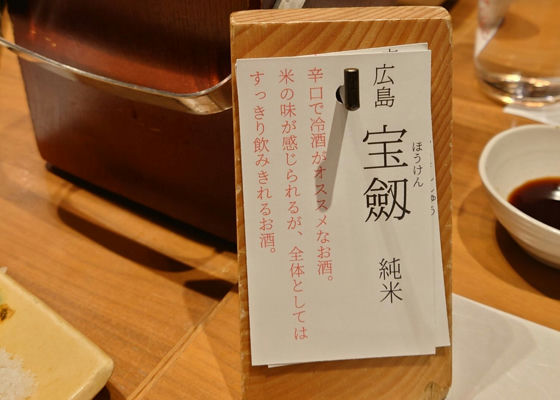 広島
宝剱
ほうけん
純米
辛口で冷酒がオススメなお酒。
米の味が感じられるが、全体としては
すっきり飲みきれるお酒。